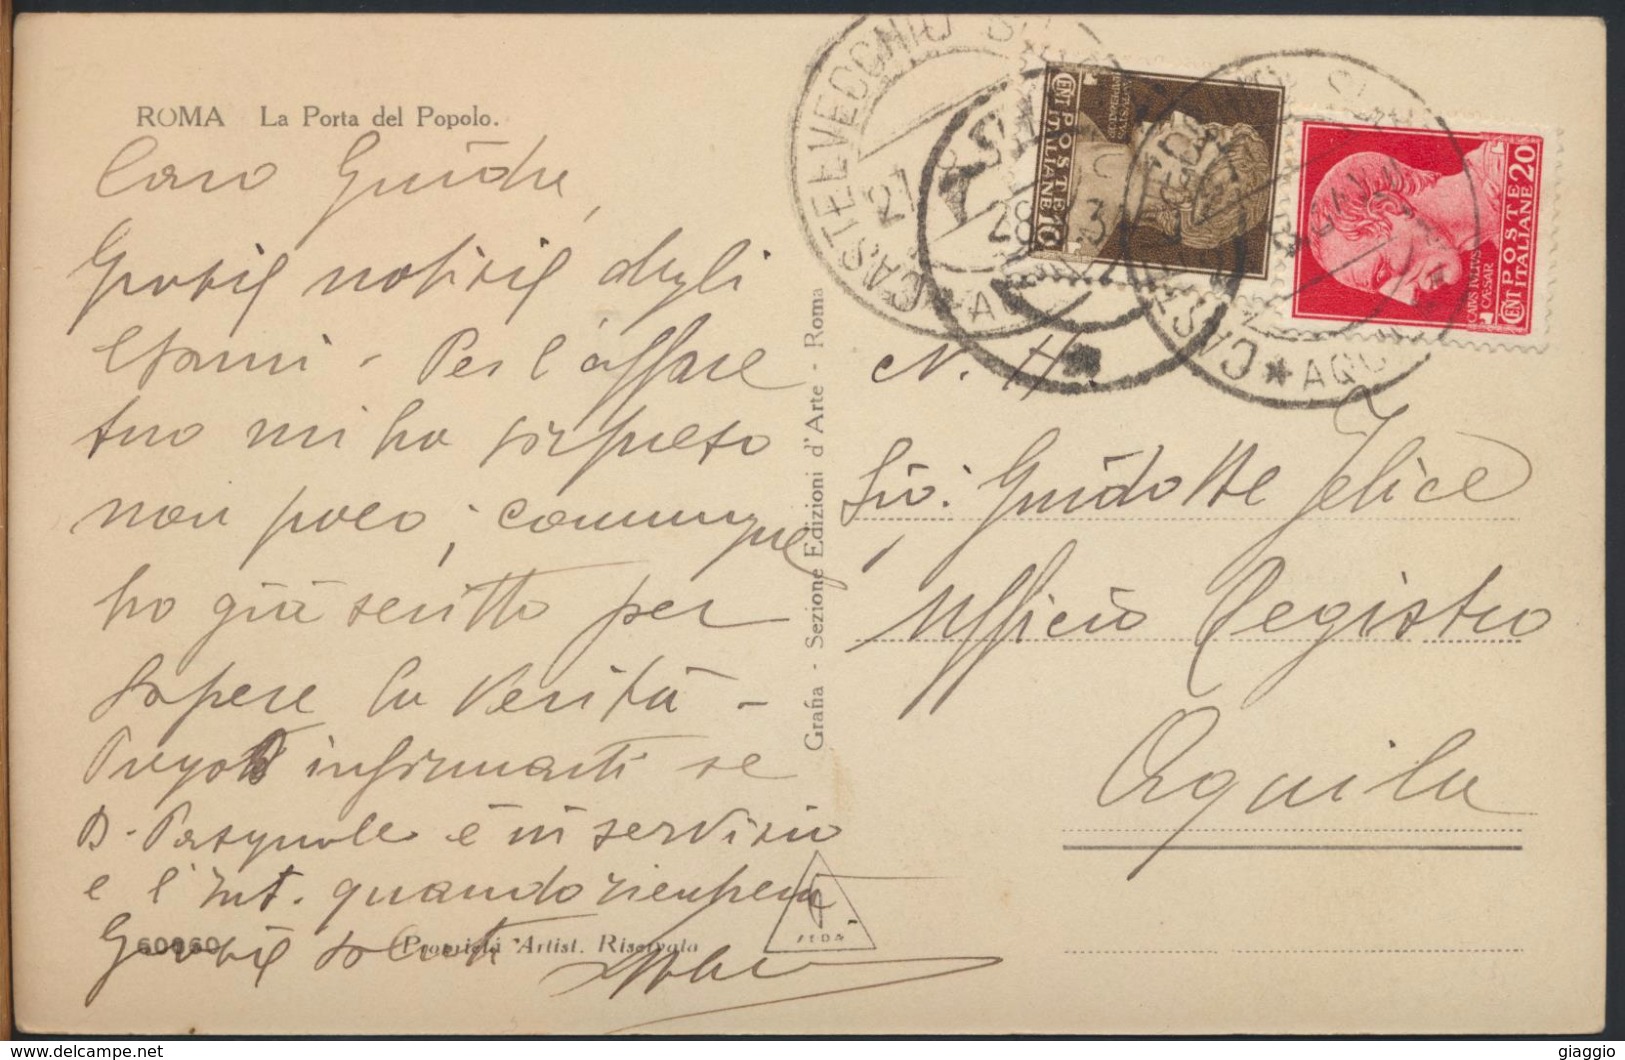 ROMA La Porta del Popolo.
Caro Guido,
Grazie notizie degli
esami - Per l'affare
tuo mi ha sorpreso
non poco; comunque
ho già scritto per
sapere la verità -
Prego informarti se
D. Pasquale è in servizio
e l'Int. quando
Grazie saluti
60960 Proprietà Artist. Riservata
Grafia - Sezione Edizioni d'Arte - Roma
FEDA
CASTELVECCHIO
28
POSTE ITALIANE 10 CENT
POSTE ITALIANE 20 CENT
CAIVS IVLIVS CÆSAR
N. H.
Guidotti Felice
Ufficio Registro
Aquila
delcampe.net
giaggio